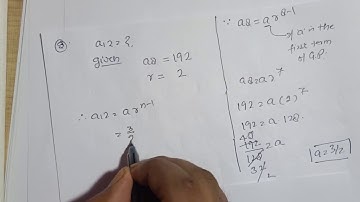 ③ a12 = ?
given a8 = 192
r = 2
∴ a12 = a r^n-1
= 3/2
∵ a8 = a r^8-1
a is the
first term
of G.P.
a8 = a r^7
192 = a (2)^7
192 = a 128
192/128 = a
3/2
a = 3/2